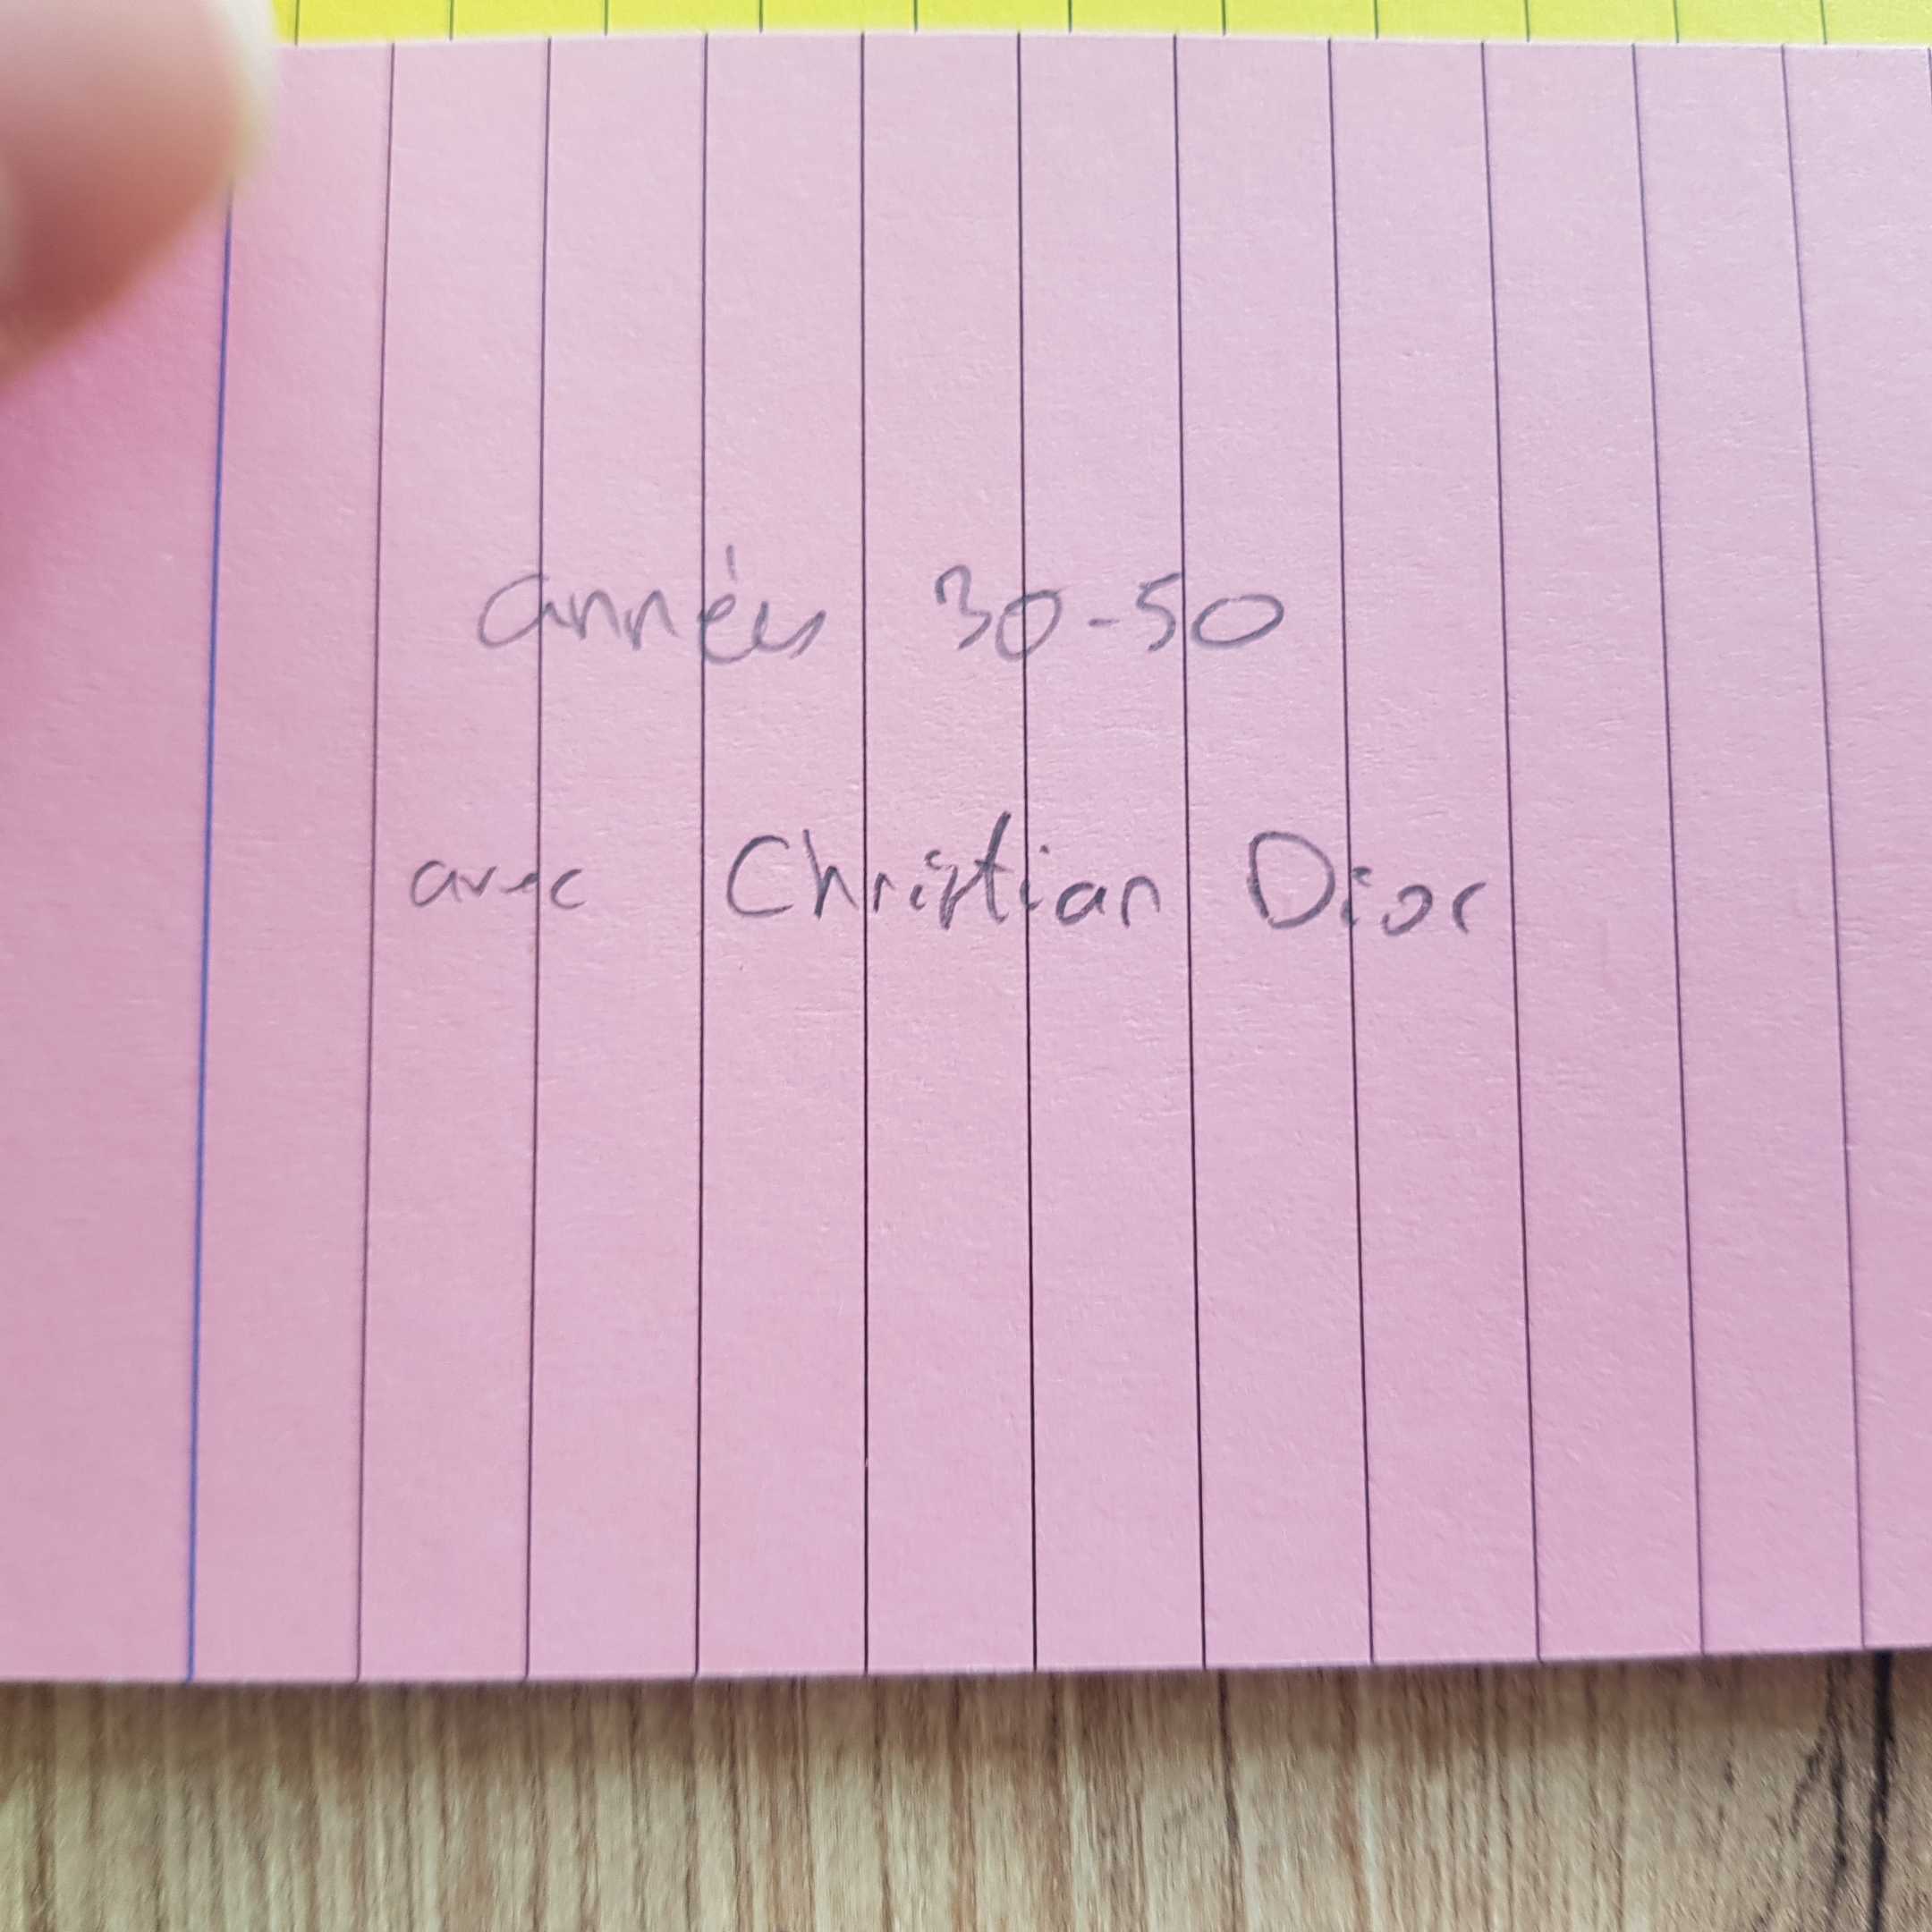 années 30-50
avec Christian Dior